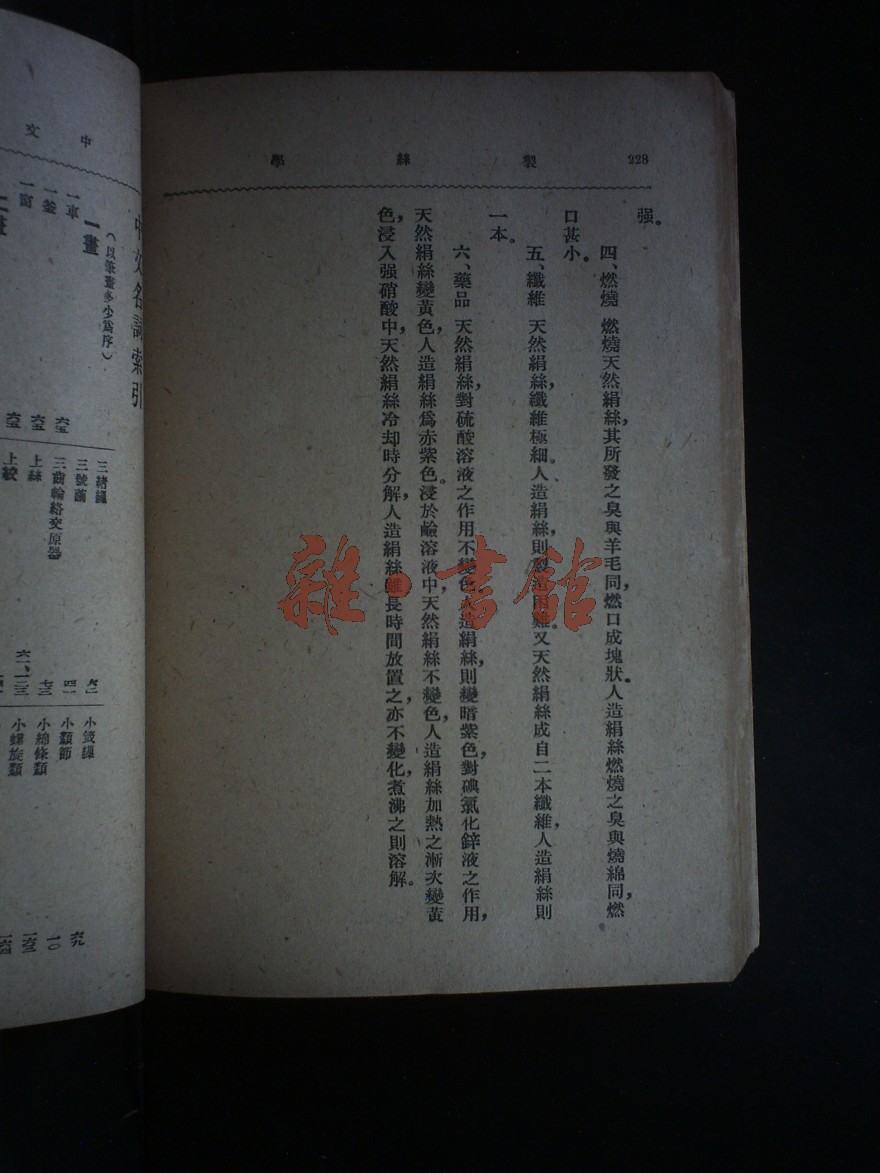 228 製絲學
强。
四、燃燒 燃燒天然絹絲，其所發之臭與羊毛同，燃口成塊狀。人造絹絲燃燒之臭與燒綿同，燃
口甚小。
五、纖維 天然絹絲，纖維極細。人造絹絲，則製造困難。又天然絹絲成自二本纖維，人造絹絲則
一本。
六、藥品 天然絹絲，對硫酸溶液之作用不變色，人造絹絲，則變暗紫色，對碘氯化鋅液之作用，
天然絹絲變黃色，人造絹絲爲赤紫色。浸於鹼溶液中，天然絹絲不變色，人造絹絲加熱之漸次變黃
色，浸入强硝酸中，天然絹絲冷却時分解，人造絹絲雖長時間放置之，亦不變化，煮沸之則溶解。
雜·書館
中文
中文名詞索引
（以筆畫多少爲序）
一畫
一車
一釜
一窗
二畫
三緒繩
三號繭
三齒輪絡交原器
上絲
上絞
小籤繰
小纇節
小綿條類
小螺旋類